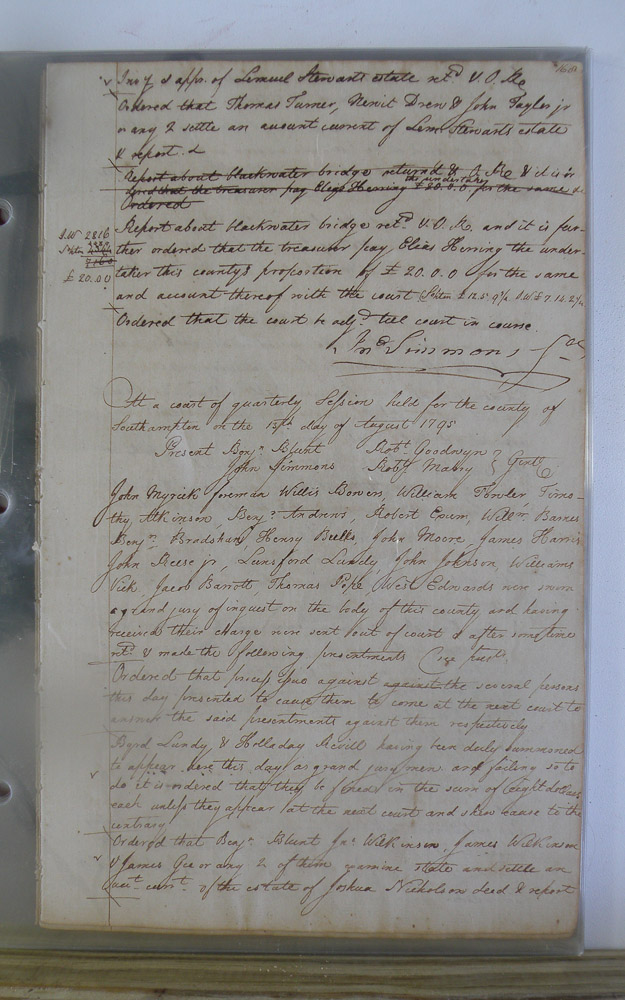 168
Inv.y & appr. of Lemuel Stewarts estate ret.d & O. R.
Ordered that Thomas Turner, Newit Drew & John Taylor jr
or any 2 settle an account current of Lem. Stewarts estate
& report. &
Report about blackwater bridge returned & O. R. & it is or
the undertaker
dered that the treasurer pay Elias Herring £ 20.0.0 for the same &
Ordered
Report about blackwater bridge ret.d & O. R. and it is fur-
ther ordered that the treasurer pay Elias Herring the under-
taker this county's proportion of £ 20.0.0 for the same
and account thereof with the court
I.W 2816
£ 20.00
Ordered that the court be adj.d till court in course
Jn.o Simmons
At a court of quarterly Session held for the county of
Southampton on the day of August 1795
Present Benj.n Blunt Rob.t Goodwyn
John Simmons Rob.t Mabry Gent.
John Myrick foreman Willis Bowers, William Fowler, Timo-
thy Atkinson, Benj.n Andrews, Robert Exum, Will.m Barnes
Benj.n Bradshaw, Henry Beells, John Moore, James Harris
John Reese jr, Lunsford Lundy, John Johnson, Williams
Vick, Jacob Barrott, Thomas Pope, West Edwards were sworn
a grand jury of inquest on the body of this county and having
received their charge were sent out of court & after some time
ret.d & made the following presentments
Ordered that process issue against against the several persons
this day presented to cause them to come at the next court to
answer the said presentments against them respectively
Byrd Lundy & Holladay Revill having been duly summoned
to appear here this day as grand jurymen and failing so to
do it is ordered that they be fined in the sum of eight dollars
each unless they appear at the next court and shew cause to the
contrary
Ordered that Benj.n Blunt Jn.o Wilkinson, James Wilkinson
& James Gee or any 2 of them examine state and settle an
acct. curr.t of the estate of Joshua Nicholson decd & report